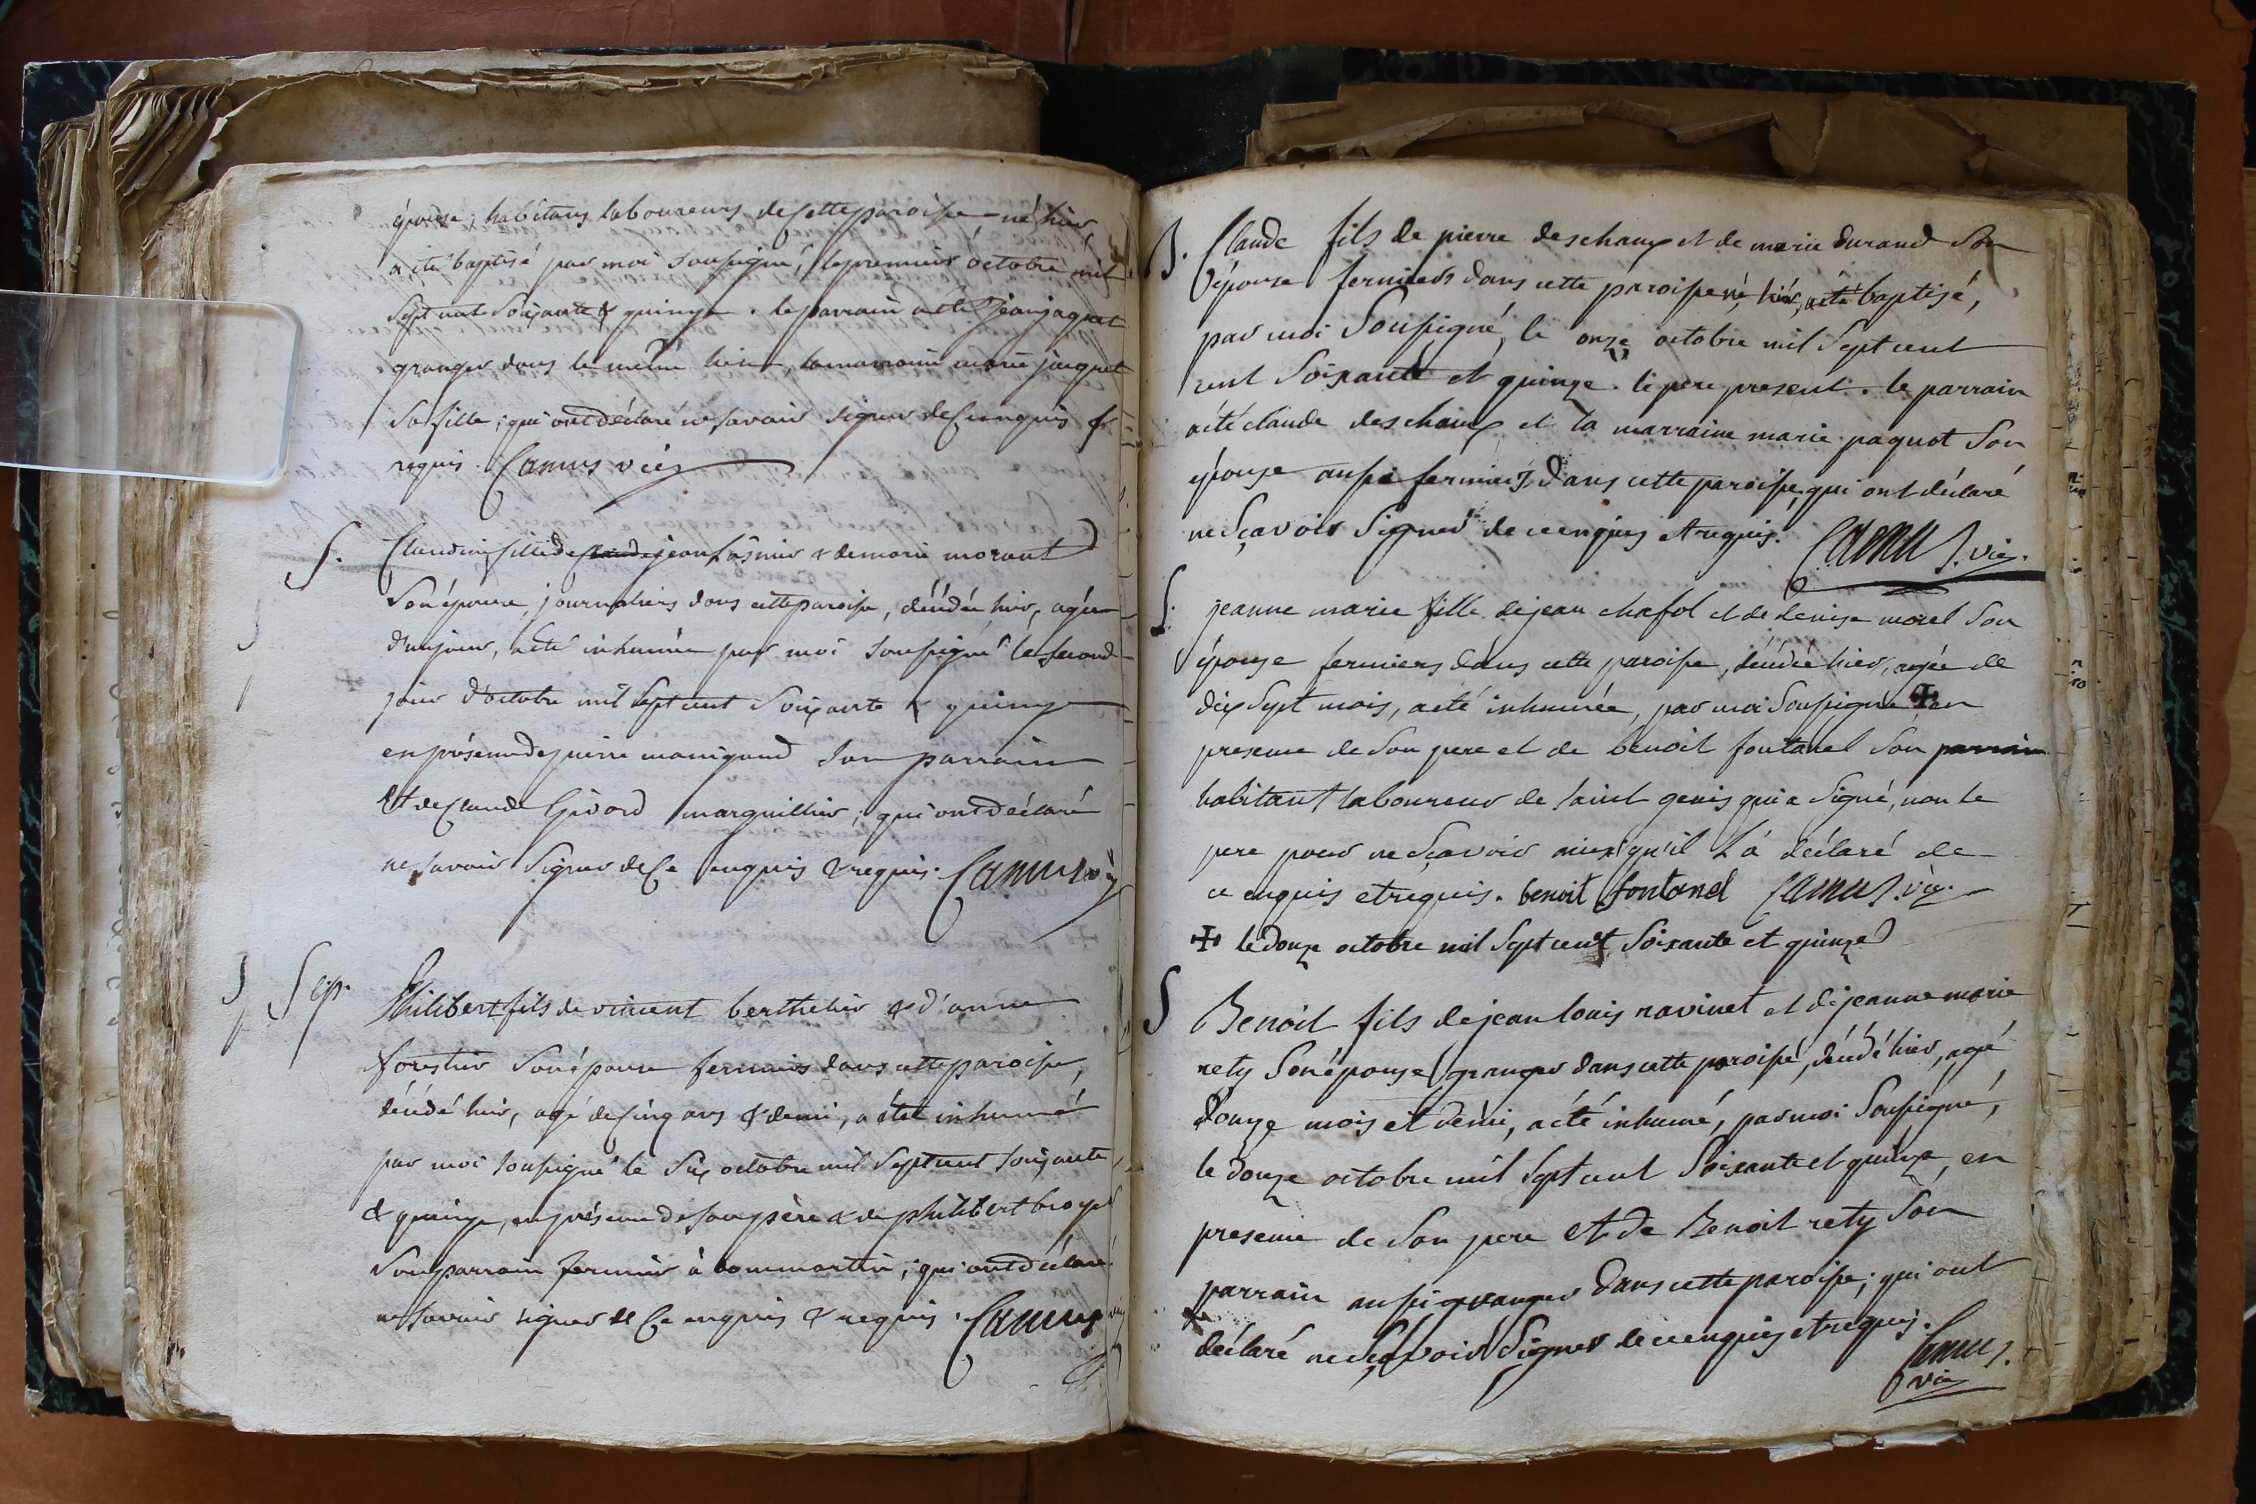 épouse, habitans laboureurs de Cette paroisse, né hier,
a été baptisé par moi soussigné, le premier octobre mil
sept cent soixante & quinze. le parrain a été jean jaquet
granger dans le même lieu, la marraine marie jaquet
sa fille; qui ont déclaré ne savoir signer de Ce enquis &
requis. Camus vic.
S. Claudine fille de claude jean Lasnier & de marie morant
son épouse, journaliers dans cette paroisse, décédée hier, agée
d'un jour, a été inhumée par moi soussigné le second
jour d'octobre mil sept cent soixante & quinze
en présence de pierre manigand son parrain
Et de Claude Givord marguillier, qui ont déclaré
ne savoir signer de Ce enquis & requis. Camus vic.
Sep. Philibert fils de vincent berthelier & d'anne
forestier son épouse fermiers dans cette paroisse,
décédé hier, agé de Cinq ans & demi, a été inhumé
par moi soussigné le six octobre mil sept cent soixante
& quinze, en présence de son père & de philibert broyer
son parrain fermier à dommartin; qui ont déclaré
ne savoir signer de Ce enquis & requis. Camus vic
B. Claude fils de pierre deschaux et de marie durand son
épouse fermiers dans cette paroisse né hier, a été baptisé,
par moi Soussigné, le onze octobre mil Sept cent
cent Soixante et quinze. le pere present. le parrain
a été claude deschaux et la marraine marie paquot Son
épouse aussi fermiers dans cette paroisse, qui ont déclaré
ne Sçavoir Signer de ce enquis et requis. Camus. vic.
S. jeanne marie fille de jean chafol et de denise morel Son
épouse fermiers dans cette paroisse, décédée hier, agée de
dix Sept mois, a été inhumée, par moi Soussigné ✠ en
presence de Son pere et de benoit fontanel Son parrain
habitant laboureur de saint genis qui a Signé, non le
pere pour ne Sçavoir ainsi qu'il L'a déclaré de
ce enquis et requis. benoit fontanel Camus. vic.
✠ le douze octobre mil Sept cent Soixante et quinze
S Benoit fils de jean louis ravinet et de jeanne marie
rety Son épouse granger dans cette paroisse, décédé hier, agé
douze mois et demi, a été inhumé, par moi Soussigné,
le douze octobre mil Sept cent Soixante et quinze, en
presence de Son pere et de Benoit rety Son
parrain aussi granger dans cette paroisse; qui ont
déclaré ne Sçavoir Signer de ce enquis et requis. Camus.
vic